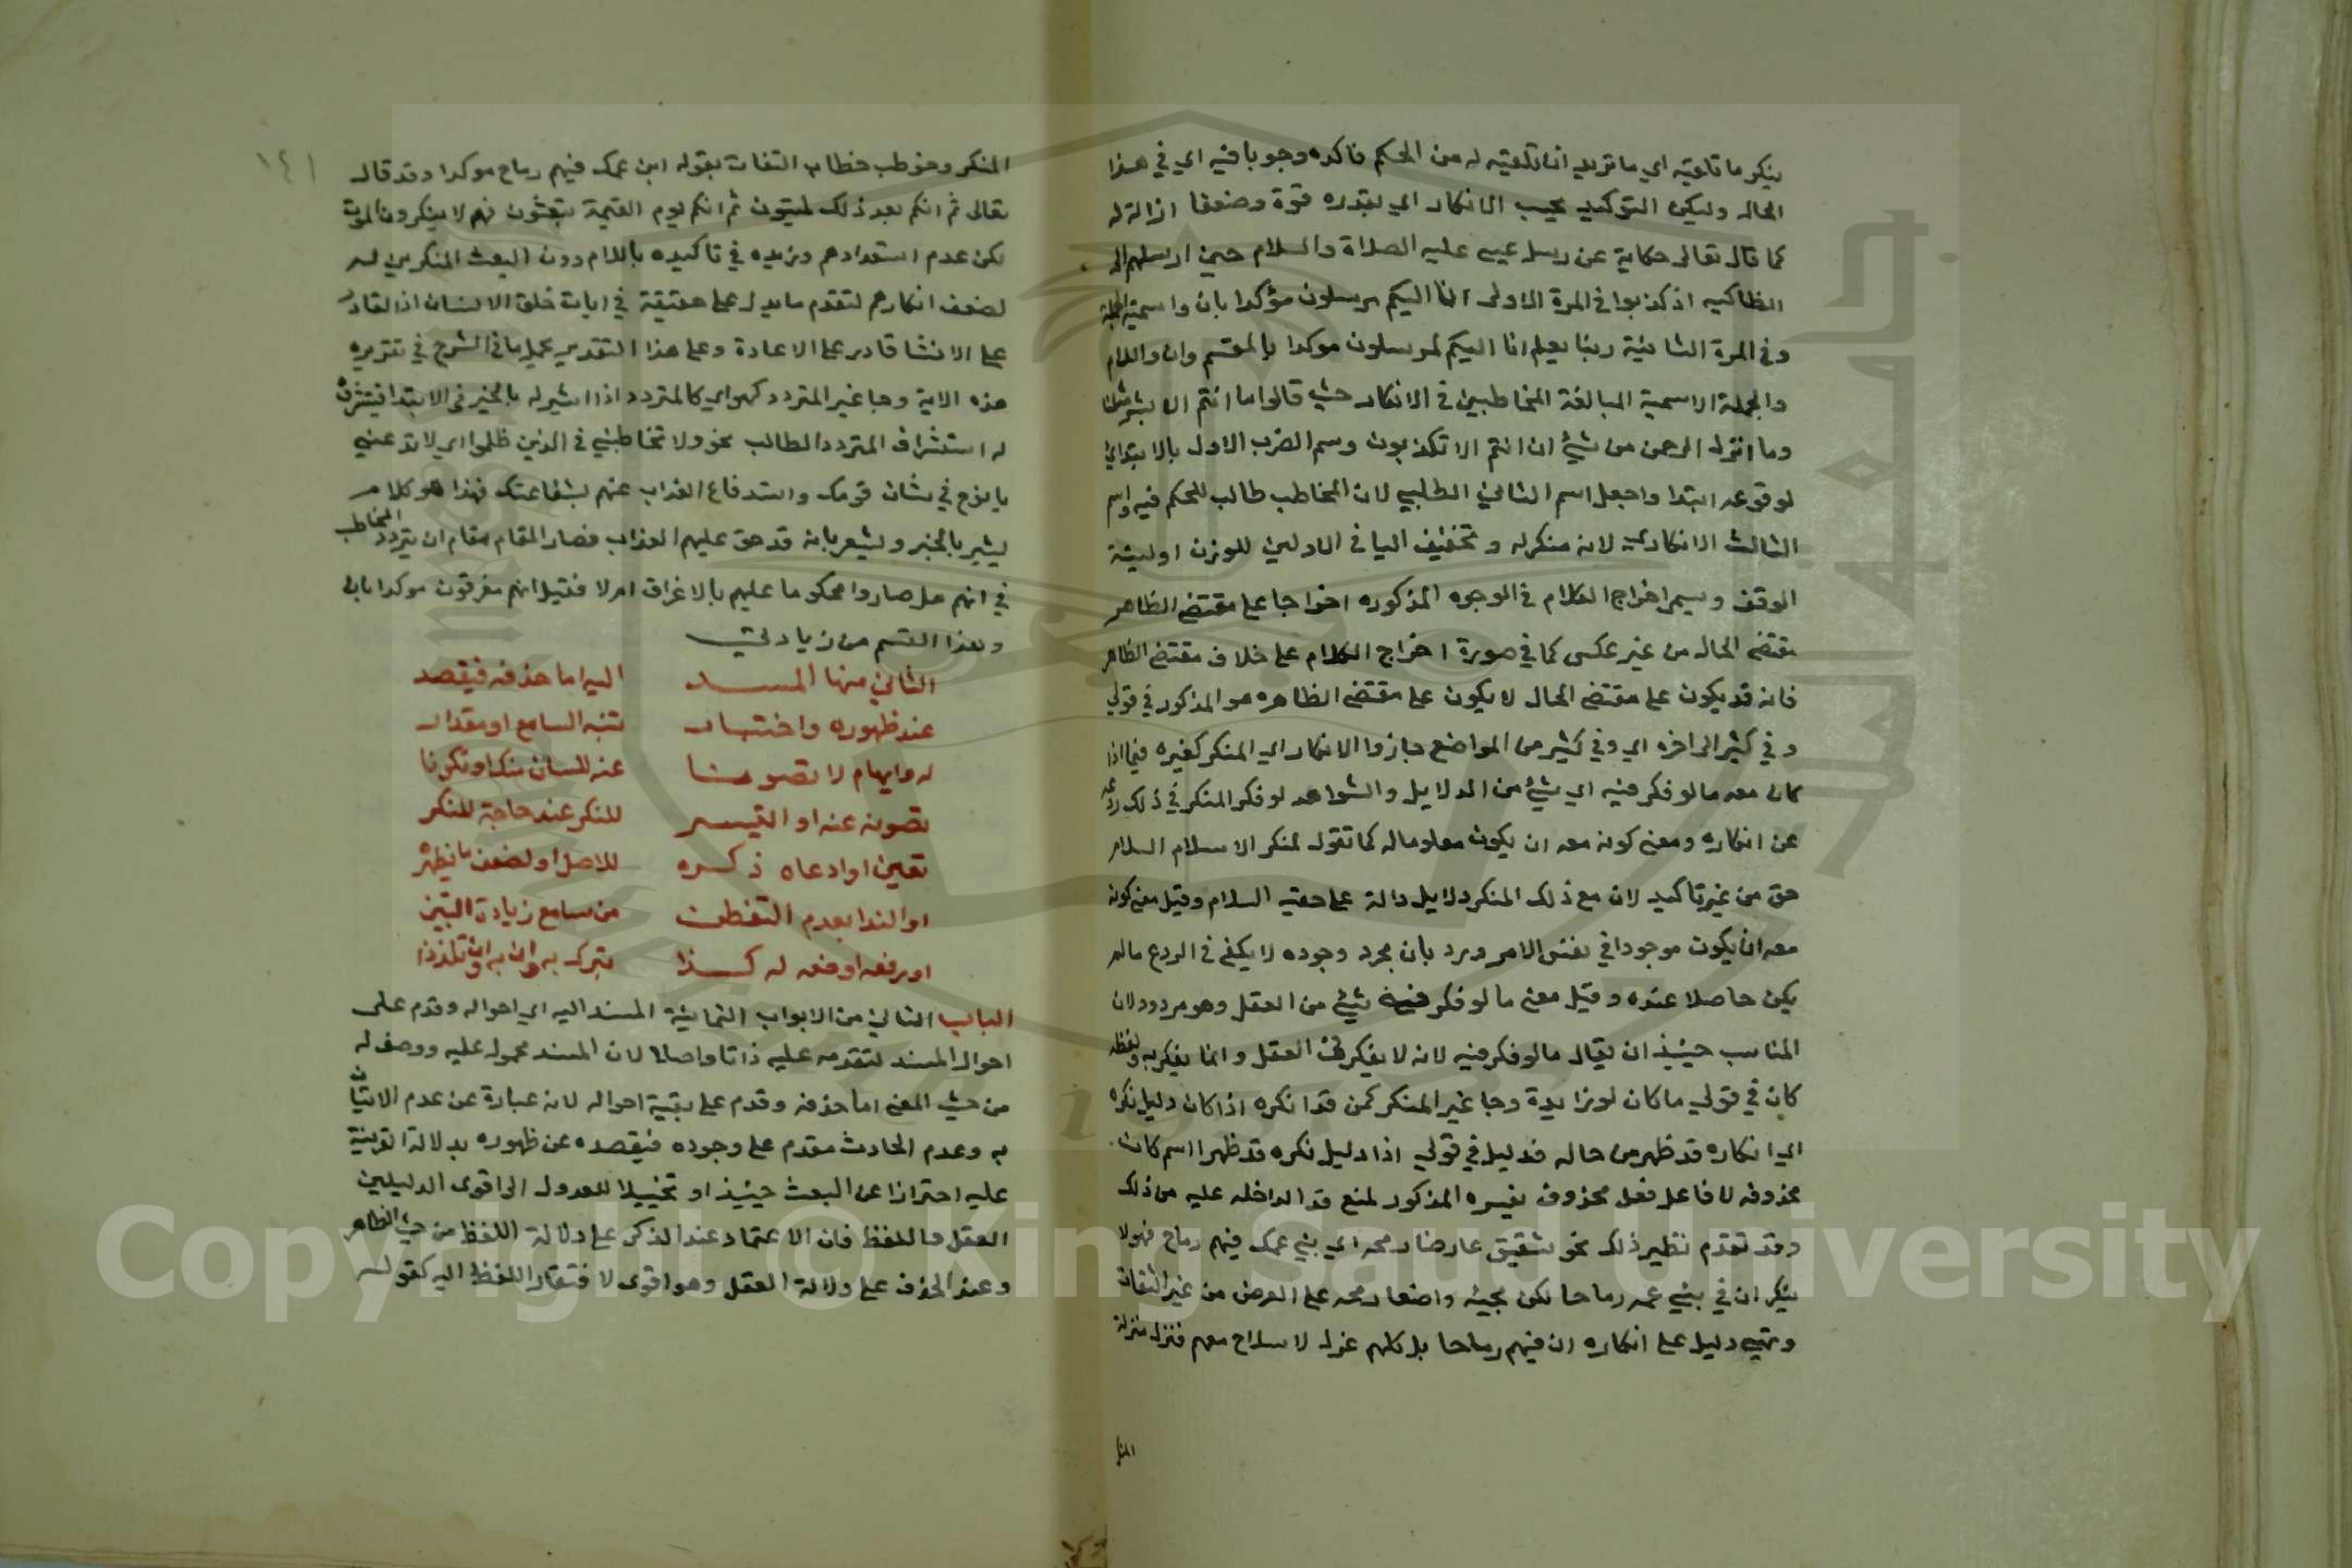 ينكر ما تلقيه اي ما تريد ان تلقيه له من الحكم فاكده وجوبا فيه اي في هذا
الحاله وليكن التوكيد بحسب الانكار اي بقدره قوة وضعفا ازالة له
كما قال تعالى حكاية عن رسل عيسى عليه الصلاة والسلام حين ارسلهم الى
انطاكيه اذ كذبوا في المرة الاولى انا اليكم مرسلون مؤكدا بان واسمية الجملة
وفي المرة الثانية ربنا يعلم انا اليكم لمرسلون موكدا بالقسم وان واللام
والجملة الاسمية لمبالغة المخاطبين في الانكار حيث قالوا ما انتم الا بشر مثلنا
وما انزل الرحمن من شيء ان انتم الا تكذبون وسم الضرب الاول بالابتداي
لوقوعه ابتدا واجعل اسم الثاني الطلبي لان المخاطب طالب للحكم فيه واسم
الثالث الانكاري لانه منكر له وتخفيف اليا في الاولين للوزن او لنية
الوقف ويسمى اخراج الكلام في الوجوه المذكوره اخراجا على مقتضى الظاهر
مقتضى الحال من غير عكس كما في صورة اخراج الكلام على خلاف مقتضى الظاهر
فانه قد يكون على مقتضى الحال لا يكون على مقتضى الظاهر هو المذكور في قولي
وفي كثير الى اخره اي وفي كثير من المواضع جازوا الانكار اي المنكر كغيره فيما اذا
كان معه ما لو فكر فيه اي شيء من الدلايل والشواهد لو فكر المنكر في ذلك ردعه
عن انكاره ومعنى كونه معه ان يكون معلوما له كما تقول لمنكر الاسلام السلام
حق من غير تاكيد لان مع ذلك المنكر دلايل دالة على حقيه السلام وقيل معنى كونه
معه ان يكون موجودا في نفس الامر ورد بان مجرد وجوده لا يكفي في الردع ما لم
يكن حاصلا عنده وقيل معنى ما لو فكر فيه شيء من العقل وهو مردود لان
المناسب حينيذ ان يقال ما لو فكر فيه لانه لا يفكر في العقل وانما يفكر به ولفظه
كان في قولي ما كان لو زايدة وجا غير المنكر كمن قد انكره اذا كان دليل نكره
اي انكاره قد ظهر من حاله فدليل في قولي اذا دليل نكره قد ظهرا اسم كان
محذوفه لا فاعل فعل محذوف يفسره المذكور لمنع قد الداخله عليه من ذلك
وقد تقدم نظير ذلك نحو لشقيق عارضا رمحه اي بني عمك فيهم رماح فهو لا
ينكر ان في بني عمه رماحا لكن مجيئه واضعا رمحه على العرض من غير التفات
وتهيء دليل على انكاره ان فيهم رماحا بل كلهم عزل لا سلاح معهم فنزل منزلة
المنكر
١٤١
المنكر وخوطب خطاب التفات بقوله ابن عمك فيهم رماح موكدا وقد قال
تعالى ثم انكم بعد ذلك لميتون ثم انكم يوم القيمة تبعثون فهم لا ينكرون الموت
لكن عدم استعدادهم وزيده في تاكيده باللام دون البعث المنكرين له
لضعف انكارهم لتقدم ما يدل على حقيقة في ايات خلق الانسان اذ القادر
على الانشا قادر على الاعادة وعلى هذا التقدير يحمل ما في الشرح في تقريره
هذه الاية وجا غير المتردد كهو اي كالمتردد اذا اشير له بالخبر في الابتدا فيتشرف
له استشراف المتردد الطالب نحو ولا تخاطبني في الذين ظلموا اي لا تدعني
يا نوح في شان قومك واستدفاع العذاب عنهم بشفاعتك فهذا هو كلام
يشير بالخبر ويشعر بانه قد حق عليهم العذاب فصار المقام مقام ان يتردد المخاطب
في انهم هل صاروا محكوما عليهم بالاغراق ام لا فقيل انهم مغرقون موكدا بان
وهذا القسم من زيادتي
الثاني منها المسند اليه اما حذفه فيقصد
عند ظهوره واختبار تنبه السامع او مقدار
له وايهام لا تصونا عنه للسان منك او تكونا
تصونه عنه او التيسر للنكر عند حاجة للمنكر
تعين او ادعاه ذكره للاصل او لضعف ما يظهر
او الندا بعدم التفطن من سامع زيادة التبين
او رفعه او ضعه له كذا تبرك به وان به تلذذا
الباب الثاني من الابواب الثمانية المسند اليه اي احواله وقدم على
احوال المسند لتقدمه عليه ذاتا واصلا لان المسند محمول عليه ووصف له
من حيث المعنى اما حذفه وقدم على بقية احواله لانه عبارة عن عدم الاتيان
به وعدم الحادث مقدم على وجوده فيقصده عن ظهوره بدلالة القرينة
عليه احترازا عن البعث حينيذ او تخييلا للعدول الى اقوى الدليلين
العقل واللفظ فان الاعتماد عند الذكر على دلالة اللفظ من حيث الظاهر
وعند الحذف على دلالة العقل وهو اقوى لافتقار اللفظ اليه كقوله
Copyright © King Saud University